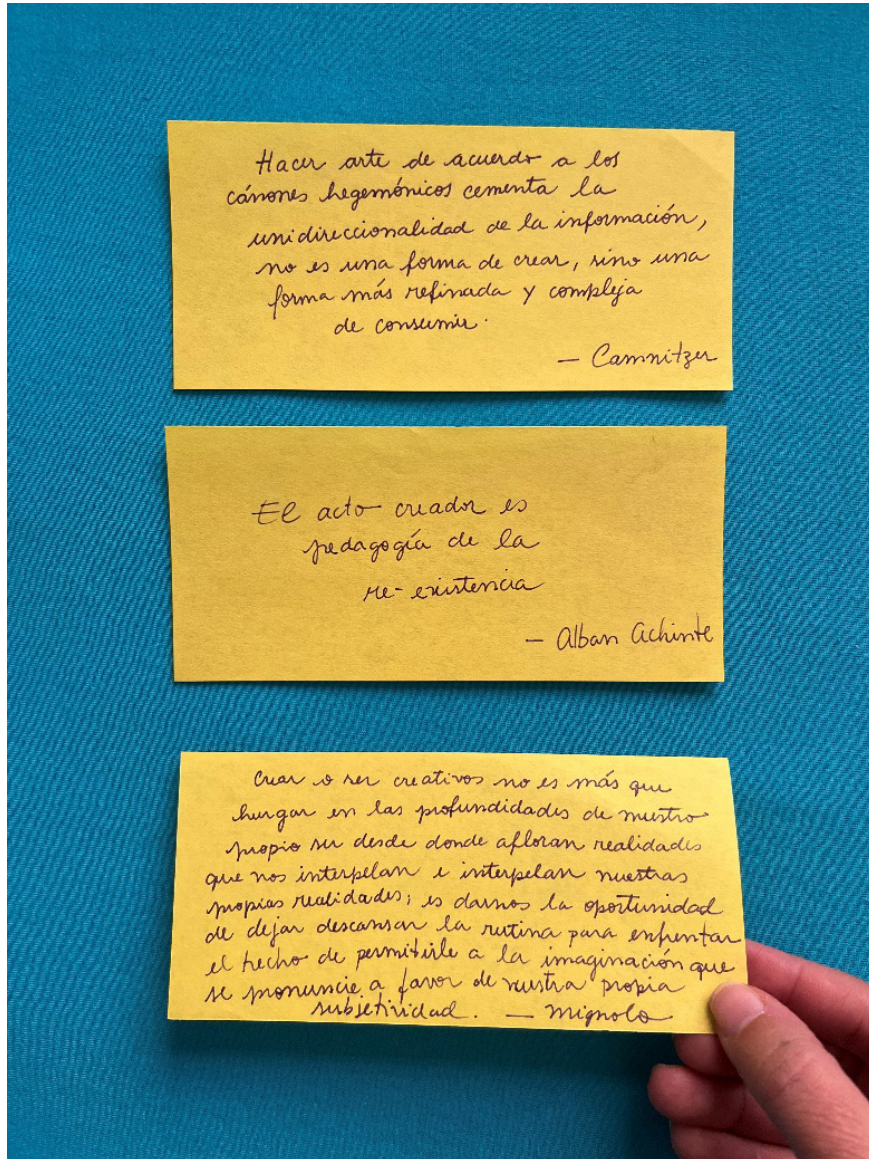 Hacer arte de acuerdo a los
cánones hegemónicos cementa la
unidireccionalidad de la información,
no es una forma de crear, sino una
forma más refinada y compleja
de consumir.
— Camnitzer
El acto creador es
pedagogía de la
re-existencia
— Alban Achinte
Crear o ser creativos no es más que
hurgar en las profundidades de nuestro
propio ser desde donde afloran realidades
que nos interpelan e interpelan nuestras
propias realidades; es darnos la oportunidad
de dejar descansar la rutina para enfrentar
el hecho de permitirle a la imaginación que
se pronuncie a favor de nuestra propia
subjetividad. — Mignolo